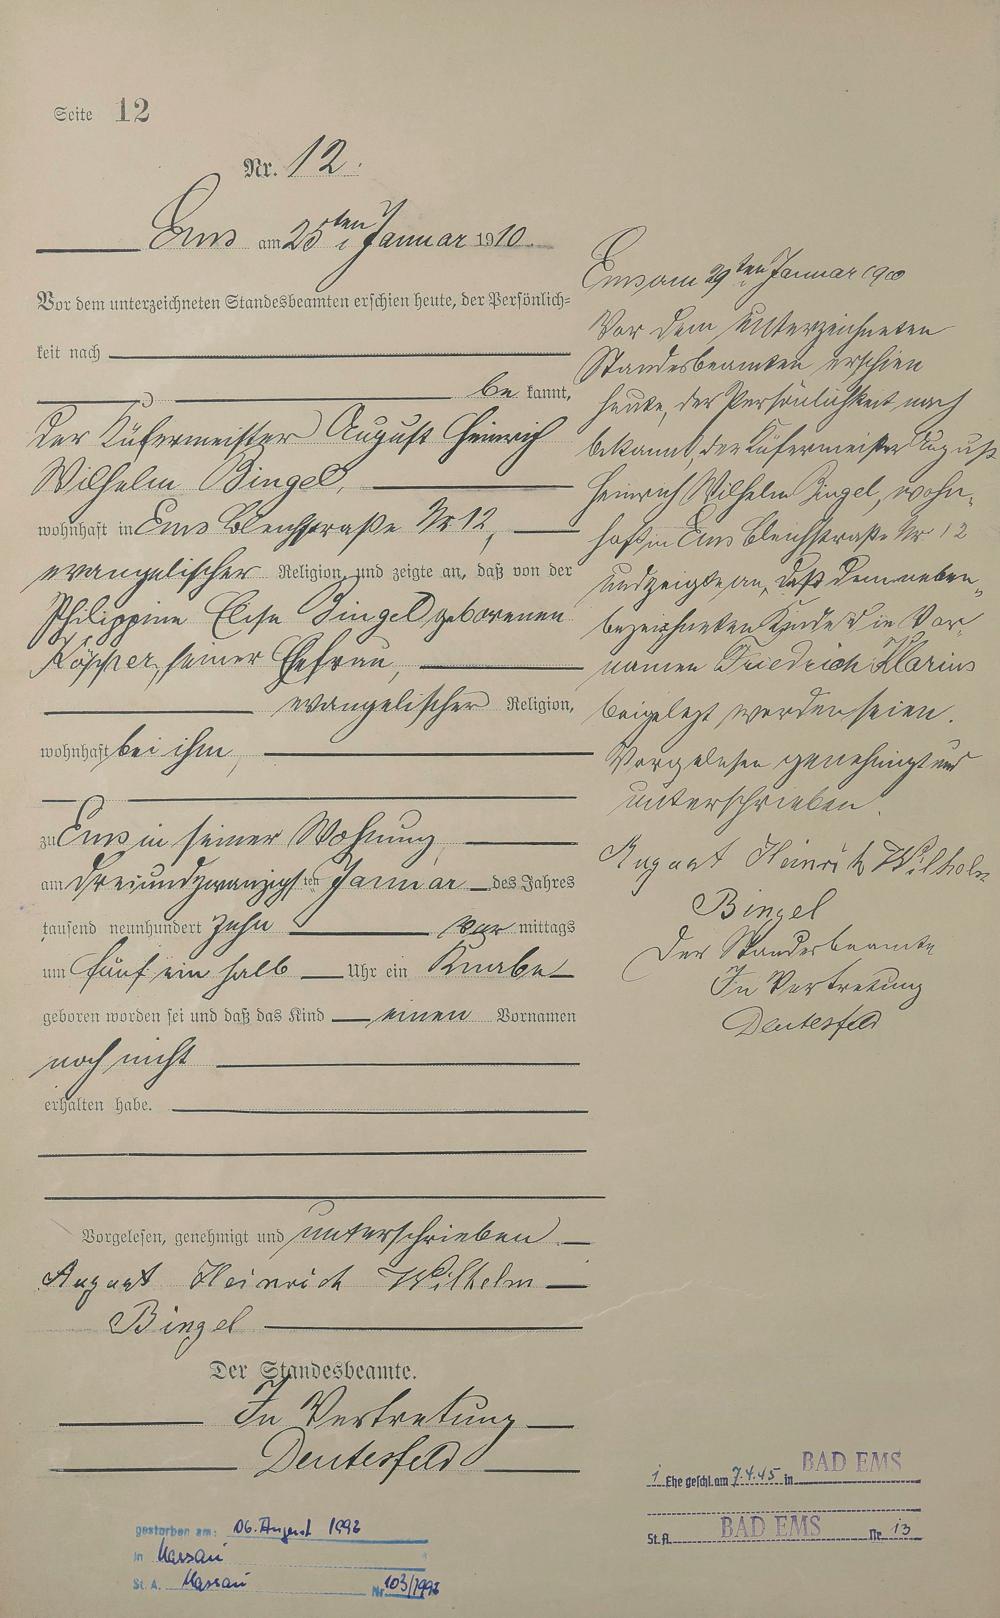 Seite 12
Nr. 12.
Ems am 25ten Januar 1910.
Vor dem unterzeichneten Standesbeamten erschien heute, der Persönlich=
keit nach
be kannt,
der Küfermeister August Heinrich
Wilhelm Bingel,
wohnhaft in Ems Bleichstraße Nr 12,
evangelischer Religion, und zeigte an, daß von der
Philippine Elise Bingel geborenen
seiner Ehefrau,
evangelischer Religion,
wohnhaft bei ihm,
zu Ems in seiner Wohnung
am dreiundzwanzigsten Januar des Jahres
tausend neunhundert zehn vor mittags
um fünf ein halb Uhr ein Knabe
geboren worden sei und daß das Kind einen Vornamen
noch nicht
erhalten habe.
Vorgelesen, genehmigt und unterschrieben
August Heinrich Wilhelm
Bingel
Der Standesbeamte.
In Vertretung
gestorben am: 06. August 1998
in Nassau
St. A. Nassau Nr 103/1998
Ems am 29ten Januar 1910
Vor dem unterzeichneten
Standesbeamten erschien
heute, der Persönlichkeit nach
bekannt, der Küfermeister August
Heinrich Wilhelm Bingel, wohn-
haft in Ems Bleichstraße Nr 12
und zeigte an, daß dem neben-
bezeichneten Kinde die Vor-
namen Friedrich
beigelegt worden seien.
Vorgelesen genehmigt und
unterschrieben.
August Heinrich Wilhelm
Bingel
Der Standesbeamte
In Vertretung
1 Ehe geschl. am 7.4.45 in BAD EMS
St. A. BAD EMS Nr. 13